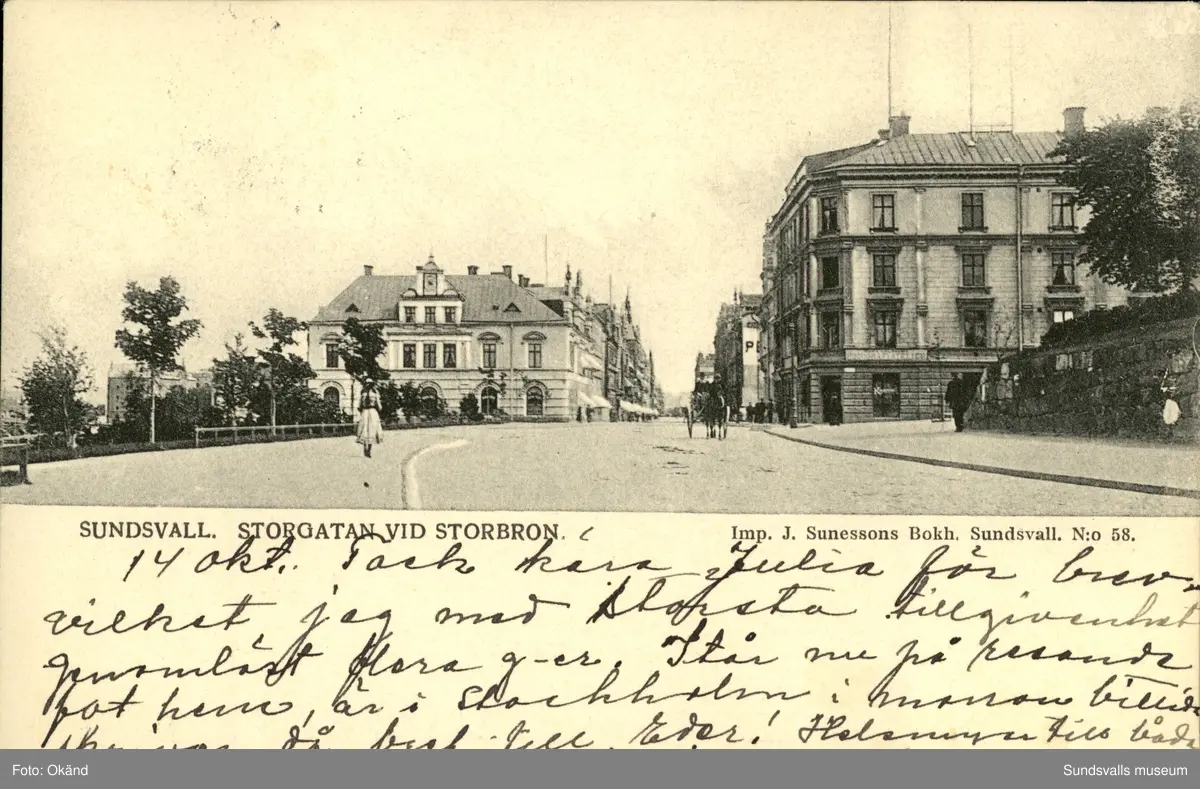 P
SUNDSVALL. STORGATAN VID STORBRON.
Imp. J. Sunessons Bokh. Sundsvall. N:o 58.
14 okt. Tack kära Julia för brev
vilket jag med största tillgivenhet
genomläst flera g-er. Står nu på resande
fot hem, är i Stockholm i morron
då Eder! Helsningar till båda
Foto: Okänd
Sundsvalls museum